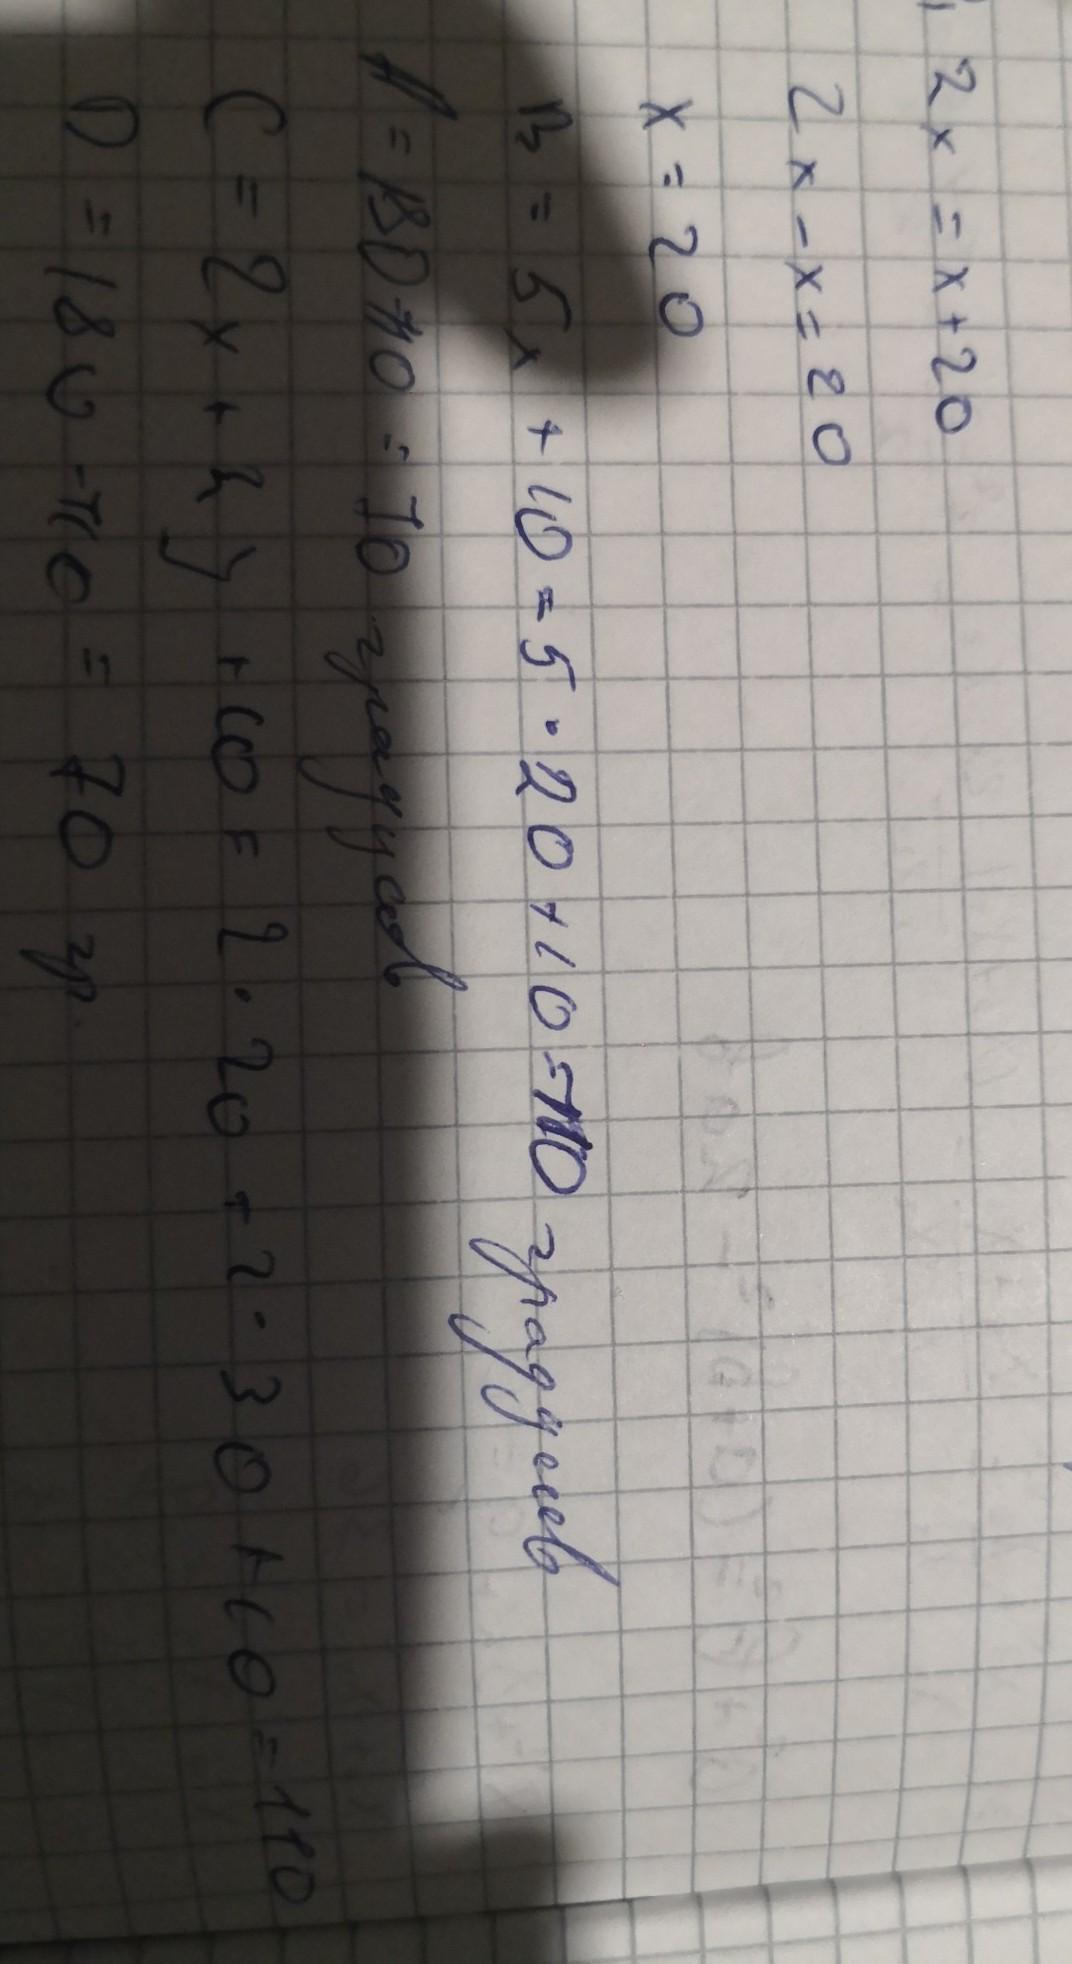 2x = x + 20
2x - x = 20
x = 20
B = 5x + 10 = 5 · 20 + 10 = 110 градусов
A = 180 - 110 = 70 градусов
C = 2x + 2y + 10 = 2 · 20 + 2 · 30 + 10 = 110
D = 180 - 110 = 70 гр.